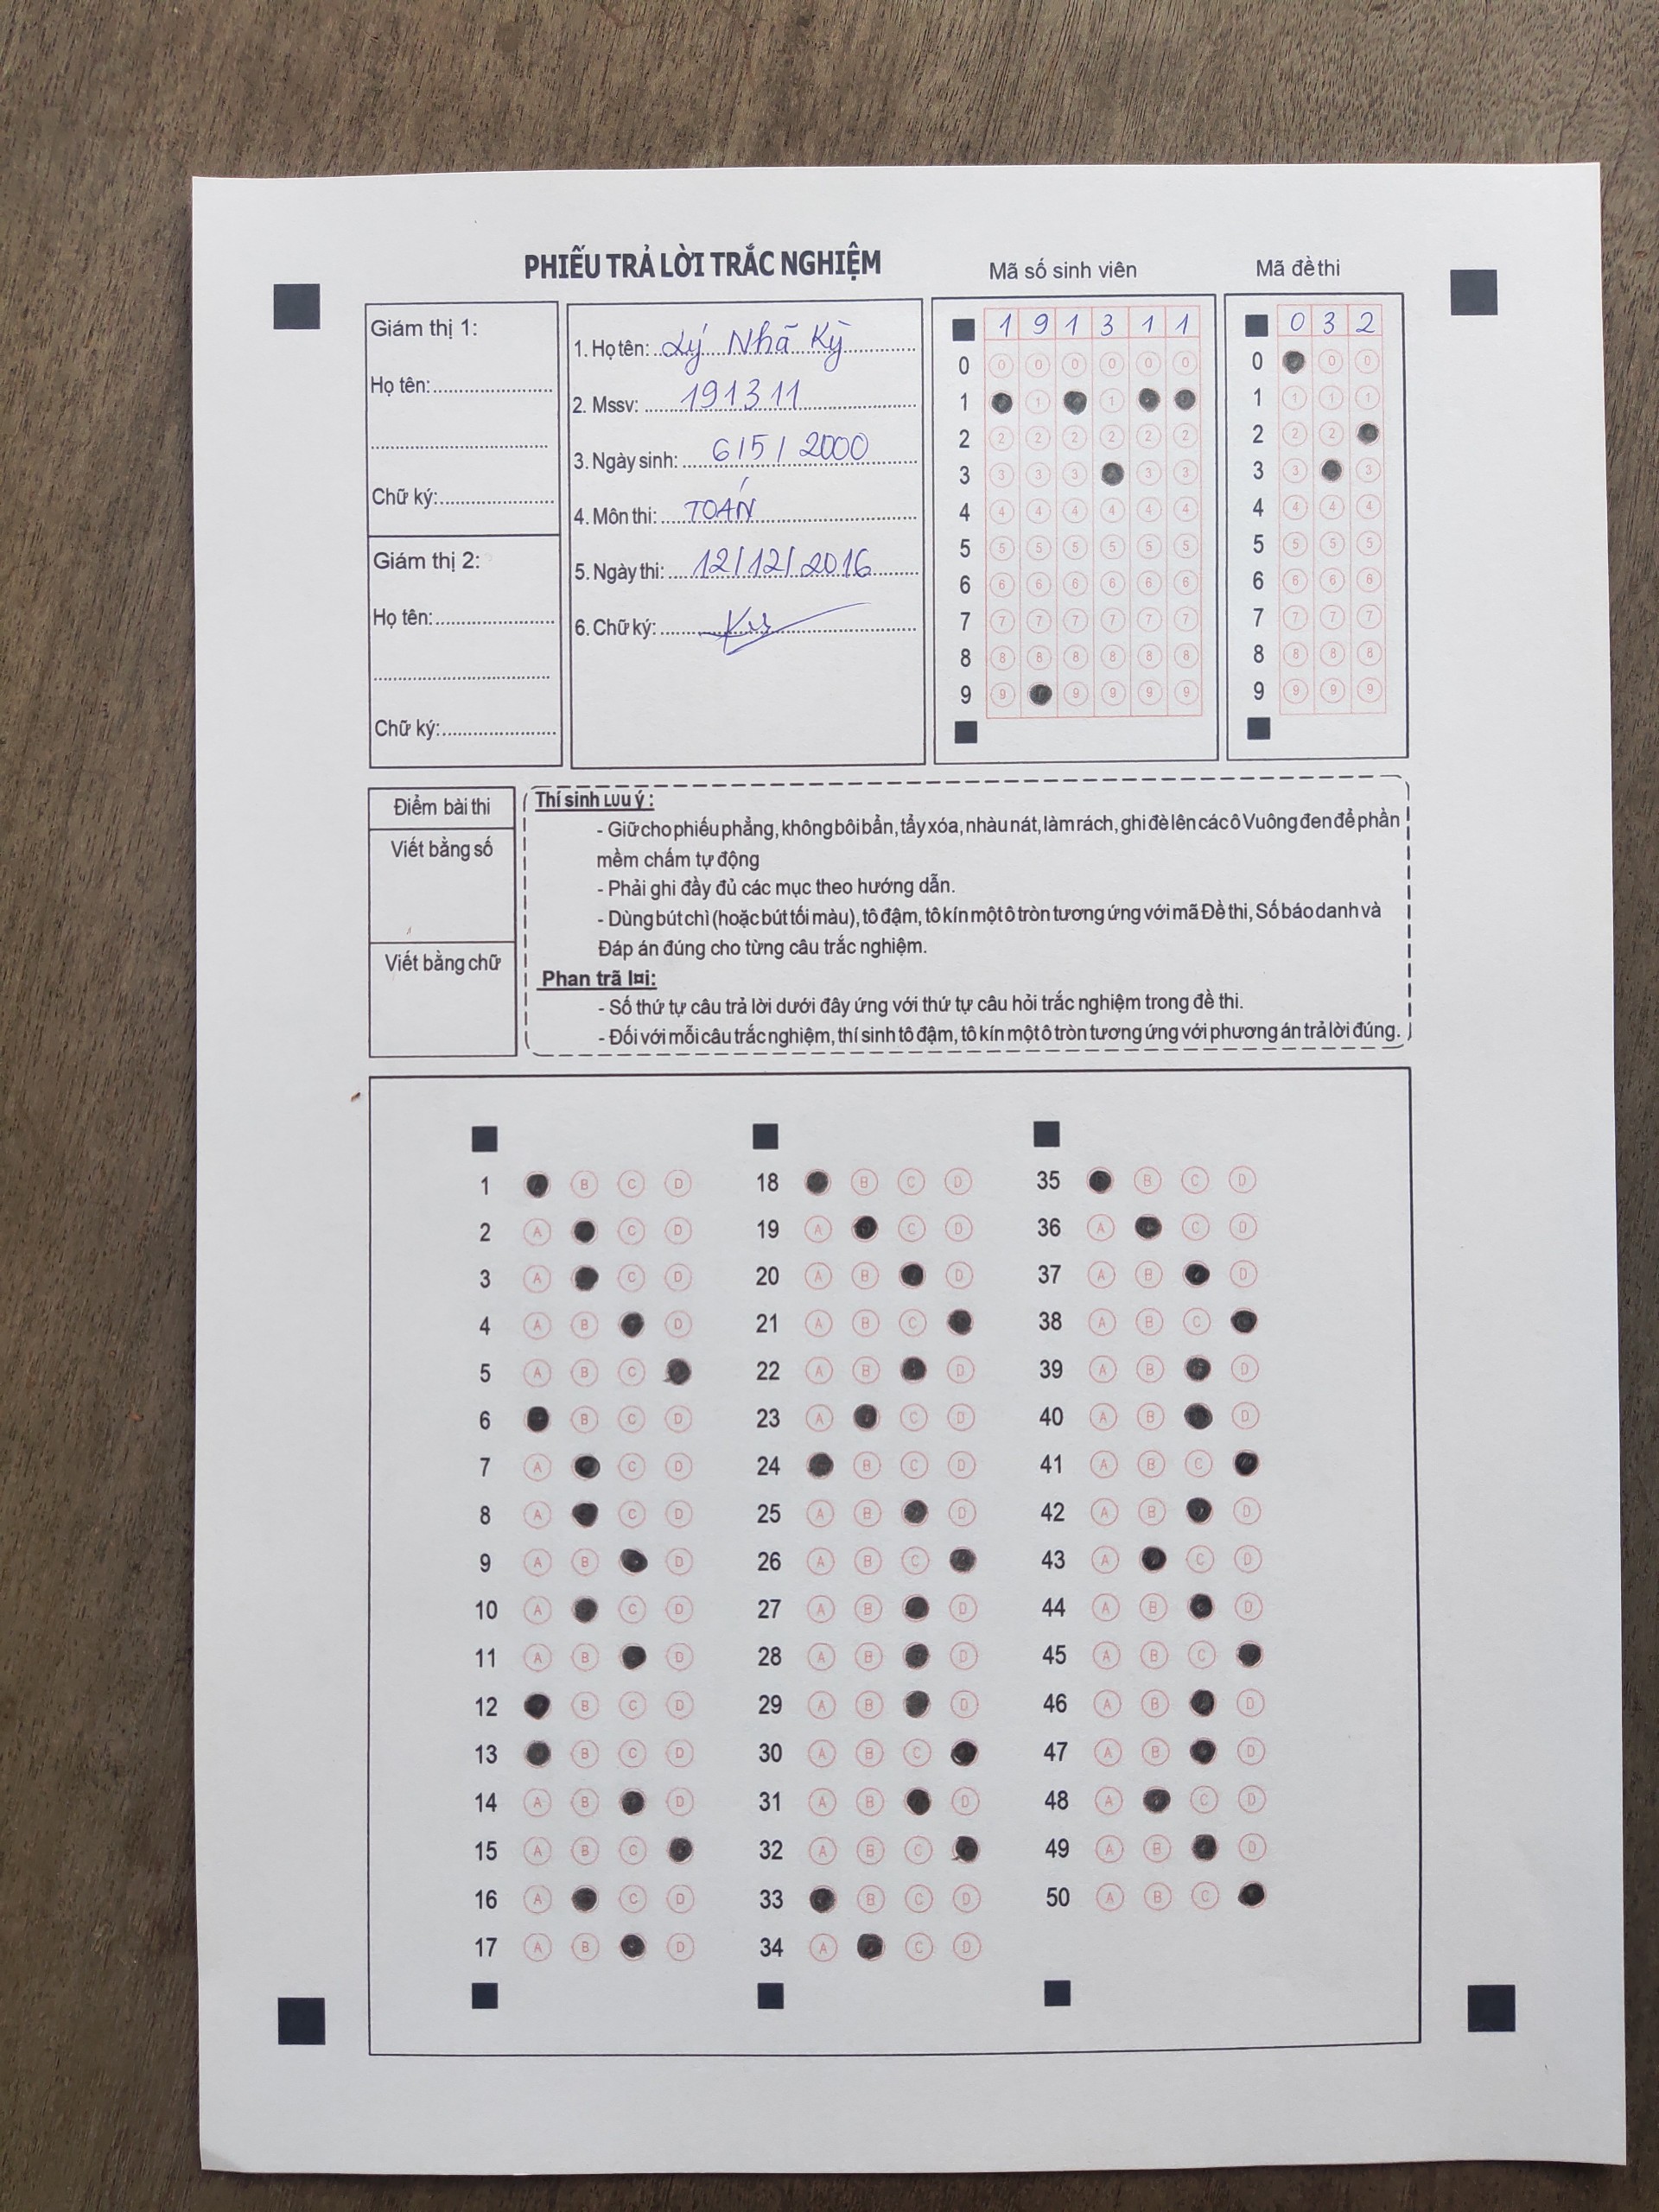 PHIẾU TRẢ LỜI TRẮC NGHIỆM
Mã số sinh viên
Mã đề thi
Giám thị 1:
Họ tên:
Chữ ký:
Giám thị 2:
Họ tên:
Chữ ký:
1. Họ tên: Lý Nhã Kỳ
2. Mssv: 191311
3. Ngày sinh: 6/5/2000
4. Môn thi: TOÁN
5. Ngày thi: 12/12/2016
6. Chữ ký:
1 9 1 3 1 1
0 0 0 0 0 0 0
1 1 1
2 2 2 2 2 2 2
3 3 3 3 3 3
4 4 4 4 4 4 4
5 5 5 5 5 5 5
6 6 6 6 6 6 6
7 7 7 7 7 7 7
8 8 8 8 8 8 8
9 9 9 9 9 9
0 3 2
0 0 0
1 1 1 1
2 2 2
3 3 3
4 4 4 4
5 5 5 5
6 6 6 6
7 7 7 7
8 8 8 8
9 9 9 9
Điểm bài thi
Viết bằng số
Viết bằng chữ
Thí sinh LUU ý :
- Giữ cho phiếu phẳng, không bôi bẩn, tẩy xóa, nhàu nát, làm rách, ghi đè lên các ô Vuông đen để phần
mềm chấm tự động
- Phải ghi đầy đủ các mục theo hướng dẫn.
- Dùng bút chì (hoặc bút tối màu), tô đậm, tô kín một ô tròn tương ứng với mã Đề thi, Số báo danh và
Đáp án đúng cho từng câu trắc nghiệm.
Phan trã l¤i:
- Số thứ tự câu trả lời dưới đây ứng với thứ tự câu hỏi trắc nghiệm trong đề thi.
- Đối với mỗi câu trắc nghiệm, thí sinh tô đậm, tô kín một ô tròn tương ứng với phương án trả lời đúng.
1 B C D
2 A C D
3 A C D
4 A B D
5 A B C
6 B C D
7 A C D
8 A C D
9 A B D
10 A C D
11 A B D
12 B C D
13 B C D
14 A B D
15 A B C
16 A C D
17 A B D
18 B C D
19 A C D
20 A B D
21 A B C
22 A B D
23 A C D
24 B C D
25 A B D
26 A B C
27 A B D
28 A B D
29 A B D
30 A B C
31 A B D
32 A B C
33 B C D
34 A C D
35 B C D
36 A C D
37 A B D
38 A B C
39 A B D
40 A B D
41 A B C
42 A B D
43 A C D
44 A B D
45 A B C
46 A B D
47 A B D
48 A C D
49 A B D
50 A B C